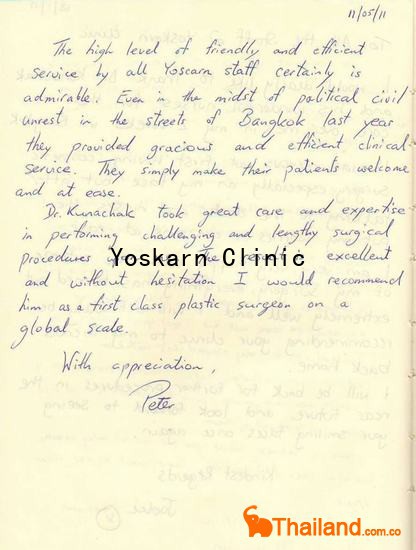 11/05/11
The high level of friendly and efficient
service by all Yoscarn staff certainly is
admirable. Even in the midst of political civil
unrest in the streets of Bangkok last year
they provided gracious and efficient clinical
service. They simply make their patients welcome
and at ease.
Dr. Kunachak took great care and expertise
in performing challenging and lengthy surgical
procedures The result excellent
Yoskarn Clinic
and without hesitation I would recommend
him as a first class plastic surgeon on a
global scale.
With appreciation,
Peter
Thailand.com.co